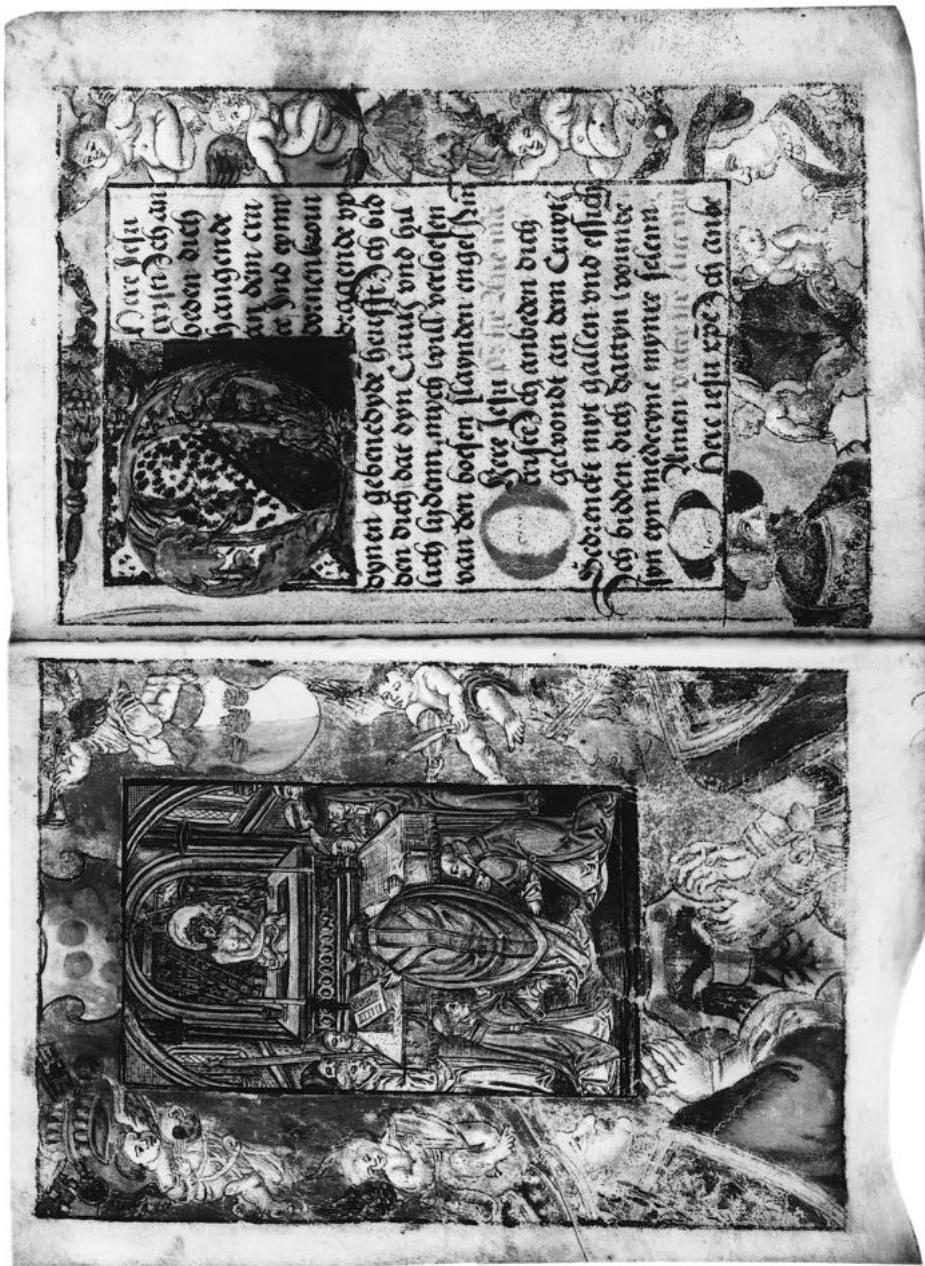 O Here Jesu
cristi Ich an
beden dich
hangende
an dem cru
ce Ind eynn
dornenkronn
dragende vp
dynen gebenedyde heufft Ich bid
den dich dat dyn Cruitz vnd
lich lydenn, mych will verloesen
van den boesen slaynden engelshin
O Here Jesu Aue ma
criste Ich anbeden dich
gewondt an den Cruytz
Gedrenckt myt gallen vnd essich
Ich bidden dich dattyn wonnde
syn eyn medecyne mynre selenn
Amen vater nr Aue ma
O Here iesu xpe Ich anbe